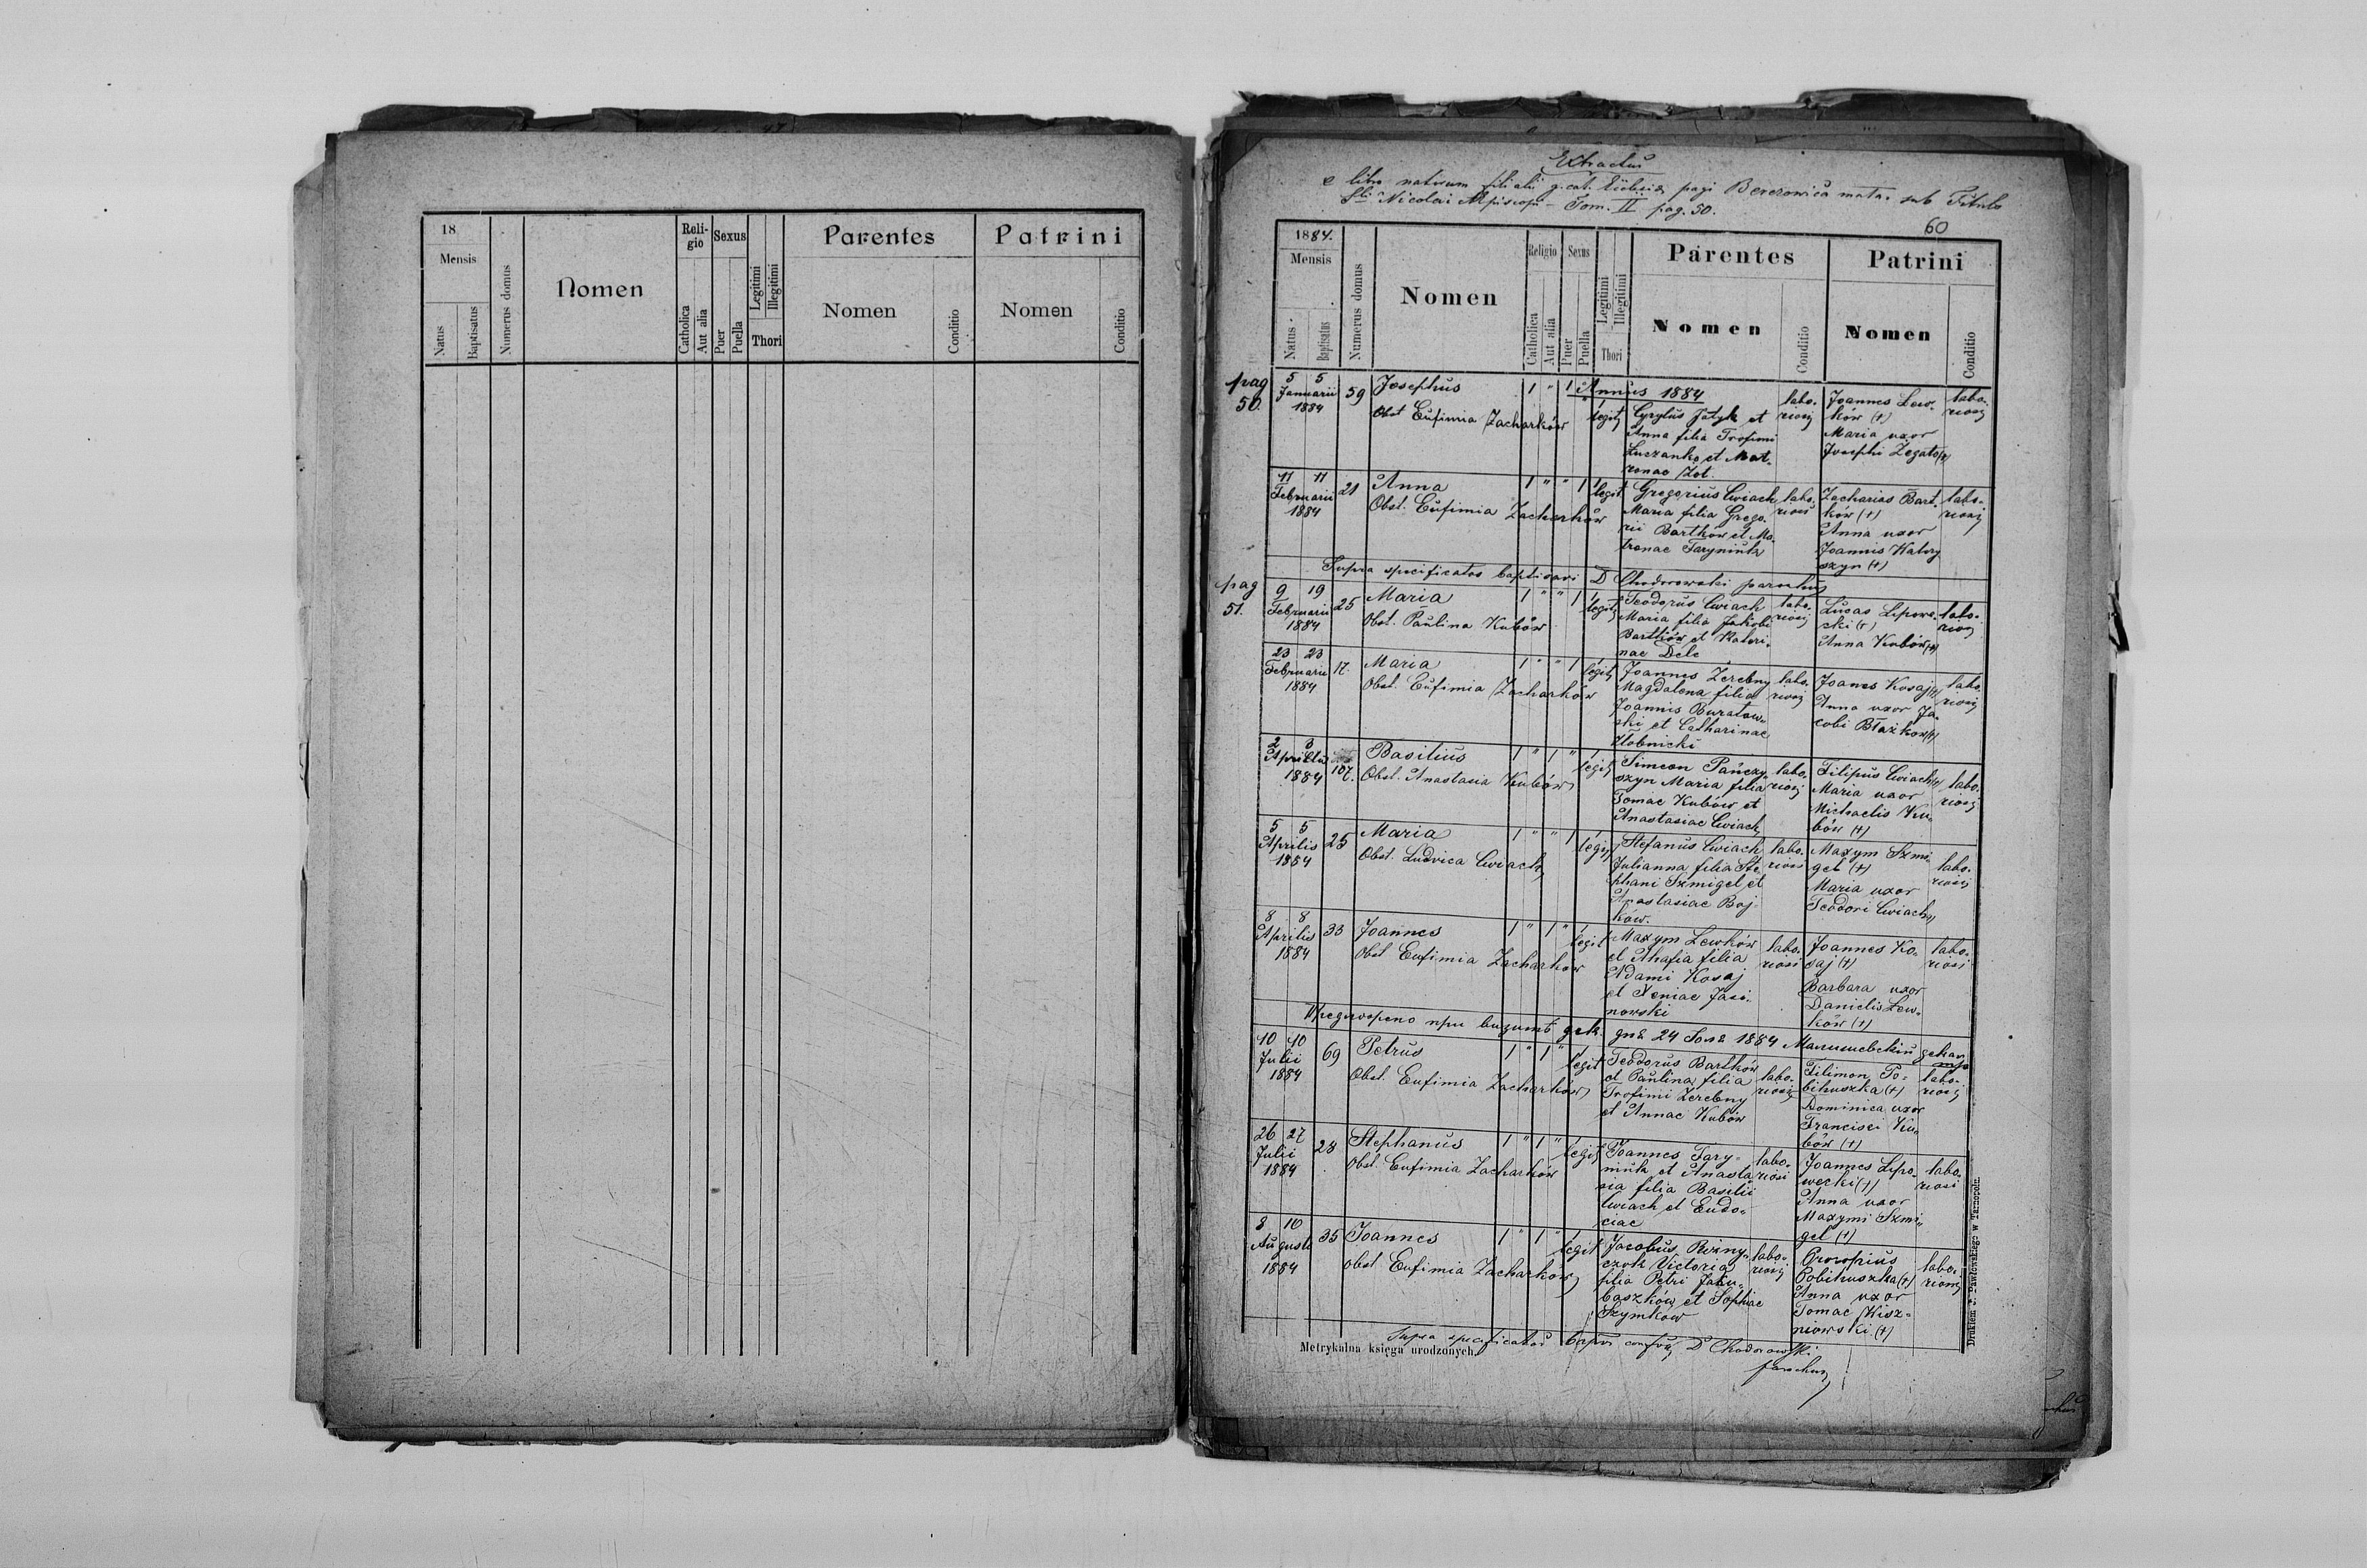 18
Mensis
Natus
Baptisatus
Numerus domus
Nomen
Religio
Catholica
Aut alia
Sexus
Puer
Puella
Legitimi
Illegitimi
Thori
Parentes
Nomen
Conditio
Patrini
Nomen
Conditio
Extractus
e libro natorum filialis g. cat. Ecclesiae pagi Berezowica mała sub Titulo
Sti Nicolai - Tom. II pag. 50.
60
1884.
Mensis
Natus
Baptisatus
Numerus domus
Nomen
Religio
Catholica
Aut alia
Sexus
Puer
Puella
Legitimi
Illegitimi
Thori
Parentes
Nomen
Conditio
Patrini
Nomen
Conditio
Annus 1884
pag
50.
5 5
Januarii
1884
59
Josephus
Obst Eufimia Zacharków
1 " 1
legit
Cyrylus et
Anna filia Trofimi
Luczanko et Mat-
ronae Zot.
labo-
riosi
Joannes Lew-
ków (+)
Maria uxor
Josephi Zegato (+)
labo-
riosi
11 11
Februarii
1884
21
Anna
Obst. Eufimia Zacharków
1 " " 1
legit
Gregorius Cwiach
Maria filia Grego-
rii Bartkow et Ma-
tronae Taryniuk
labo-
riosi
Zacharias Bart-
ków (+)
Anna uxor
Joannis Katery-
szyn (+)
labo-
riosi
Supra specificatos baptisavi D Chodorowski parochus
pag
51.
9 19
Februarii
1884
25
Maria
Obst. Paulina Kubów
1 " " 1
legit
Teodorus Cwiach
Maria filia Jakobi
Bartków et Kateri-
nae Dele
labo-
riosi
Lucas Lipow-
ski (+)
Anna Kubów (+)
labo-
riosi
23 23
Februarii
1884
17.
Maria
Obst. Eufimia Zacharków
1 " " 1
legit
Joannes Zerebny
Magdalena filia
Joannis Buratow-
ski et Catharinae
Złobnicki
labo-
riosi
Joanes Kosaj (+)
Anna uxor Ja-
cobi Błażkow (+)
labo-
riosi
2 3
Aprilis
1884
107.
Basilius
Obst. Anastasia Kubów
1 " 1 "
legit
Simeon Pańczy-
szyn Maria filia
Tomae Kubów et
Anastasiae Cwiach
labo-
riosi
Filipus Cwiach (+)
Maria uxor
Michaelis Ku-
bów (+)
labo-
riosi
5 5
Aprilis
1884
25
Maria
Obst. Ludvica Cwiach
1 " " 1
legit
Stefanus Cwiach
Julianna filia Ste-
phani Szmigel et
Anastasiae Boj-
ków.
labo-
riosi
Maxym Szmi-
gel (+)
Maria uxor
Teodori Cwiach
labo-
riosi
8 8
Aprilis
1884
33
Joannes
Obst Eufimia Zacharkow
1 " 1 "
legit
Maxym Lewków
et Ahafia filia
Adami Kosaj
et Xeniae Jasi-
nowski
labo-
riosi
Joannes Ko-
saj (+)
Barbara uxor
Danielis Lew-
ków (+)
labo-
riosi
при дек. дня 24 1884 декан
10 10
Julii
1884
69
Petrus
Obst. Eufimia Zacharków
1 " 1 "
legit
Teodorus Bartków
et Paulina filia
Trofimi Zerebny
et Annae Kubów
labo-
riosi
Filimon Po-
bihuszka (+)
Dominica uxor
Francisci Ku-
bów (+)
labo-
riosi
26 27
Julii
1884
28
Stephanus
Obst. Eufimia Zacharków
1 " 1 "
legit
Joannes Tary-
niuk et Anasta-
sia filia Basilii
Cwiach et Eudo-
ciae
labo-
riosi
Joannes Lipo-
wecki (+)
Anna uxor
Maxymi Szmi-
gel (+)
labo-
riosi
8 10
Augusti
1884
35
Joannes
obst Eufimia Zacharków
1 " 1 "
legit
Jacobus
Victoria
filia Petri Jaku-
baszków et Sophiae
Szymków
labo-
riosi
Procopius
Pobihuszka (+)
Anna uxor
Tomae Kisz-
niowski (+)
labo-
riosi
Supra specificatos D Chodorowski
parochus
Metrykalna księga urodzonych.
Drukiem J. Pawłowskiego w Tarnopolu.